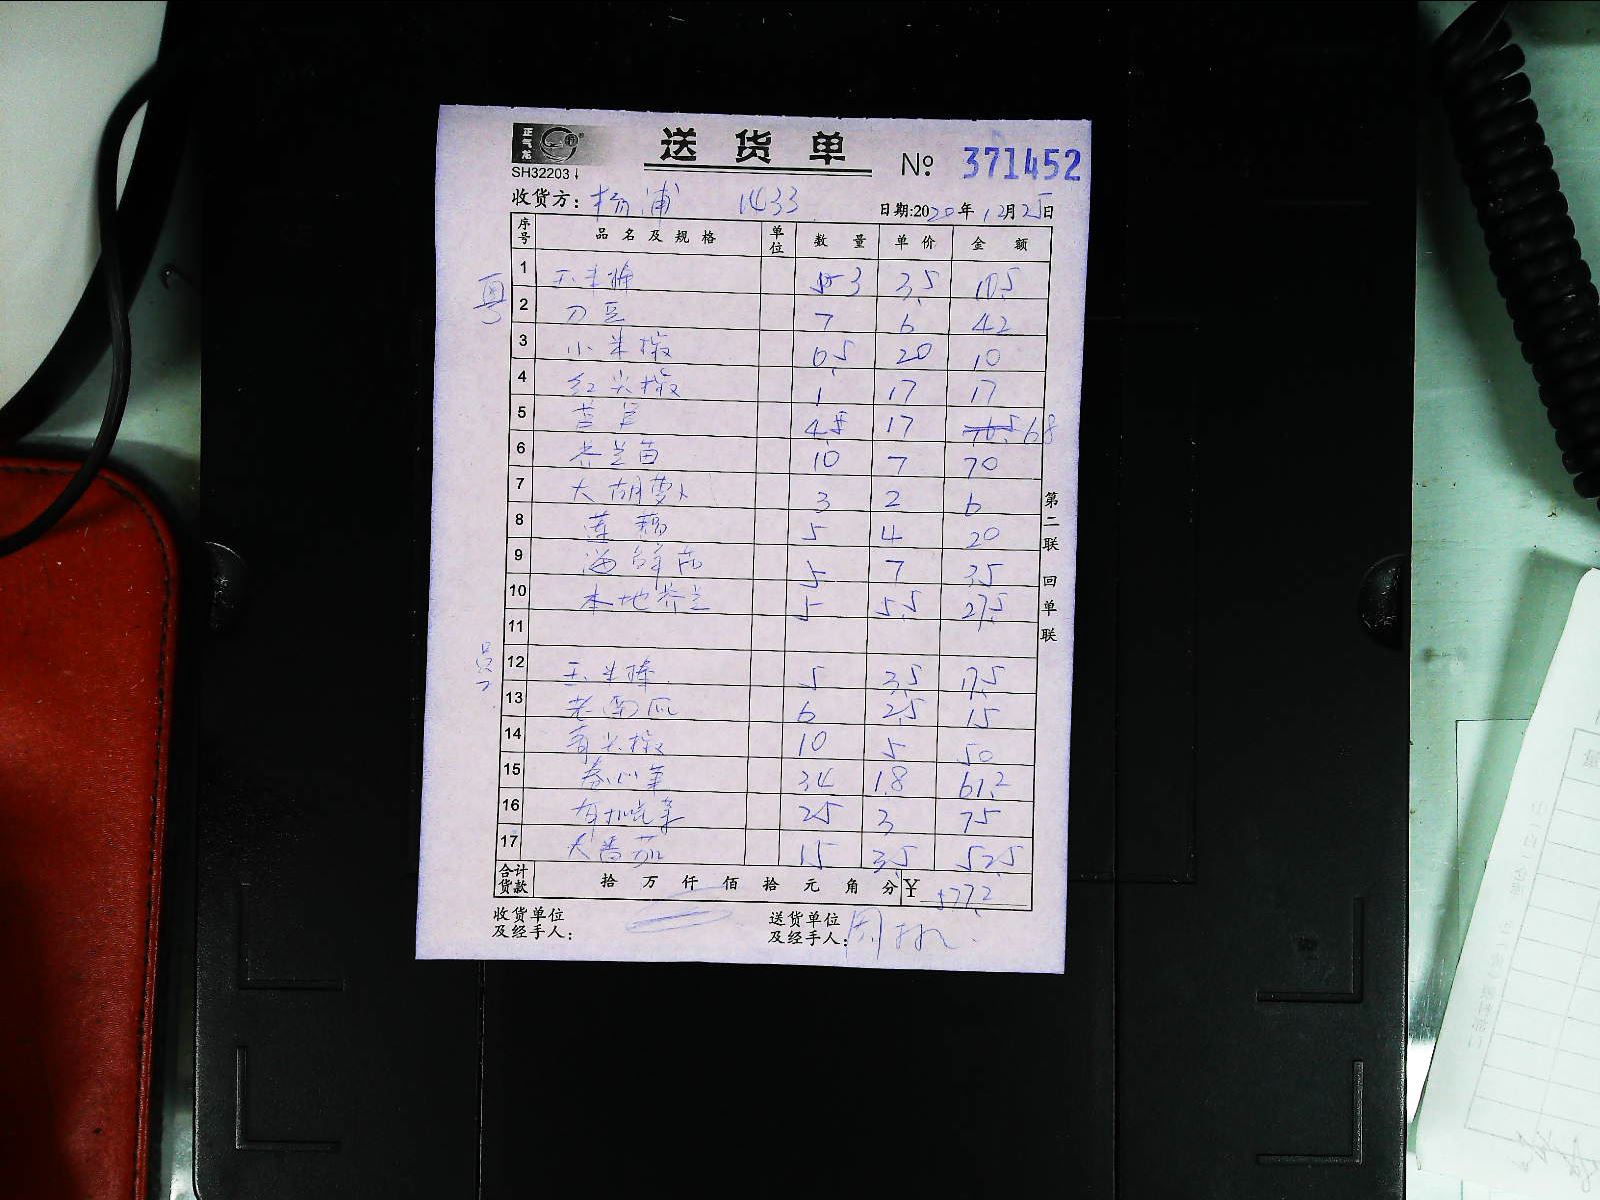 正气龙
SH32203
送货单
No: 371452
收货方: 杨浦 1433
日期:2020年12月25日
序号 品名及规格 单位 数量 单价 金额
粤
1 玉米棒 3 3.5 10.5
2 刀豆 7 6 42
3 小米椒 0.5 20 10
4 红尖椒 1 17 17
5 17 68
6 芥兰苗 10 7 70
7 大胡萝卜 3 2 6
8 莲藕 5 4 20
9 海鲜菇 5 7 35
10 本地芥兰 5 5.5 27.5
11
员工
12 玉米棒 5 3.5 17.5
13 老南瓜 6 2.5 15
14 青尖椒 10 5 50
15 卷心菜 34 1.8 61.2
16 有机花菜 25 3 75
17 大番茄 15 3.5 52.5
合计货款 拾 万 仟 佰 拾 元 角 分 ¥ 577.2
收货单位及经手人:
送货单位及经手人: 周
第二联 回单联